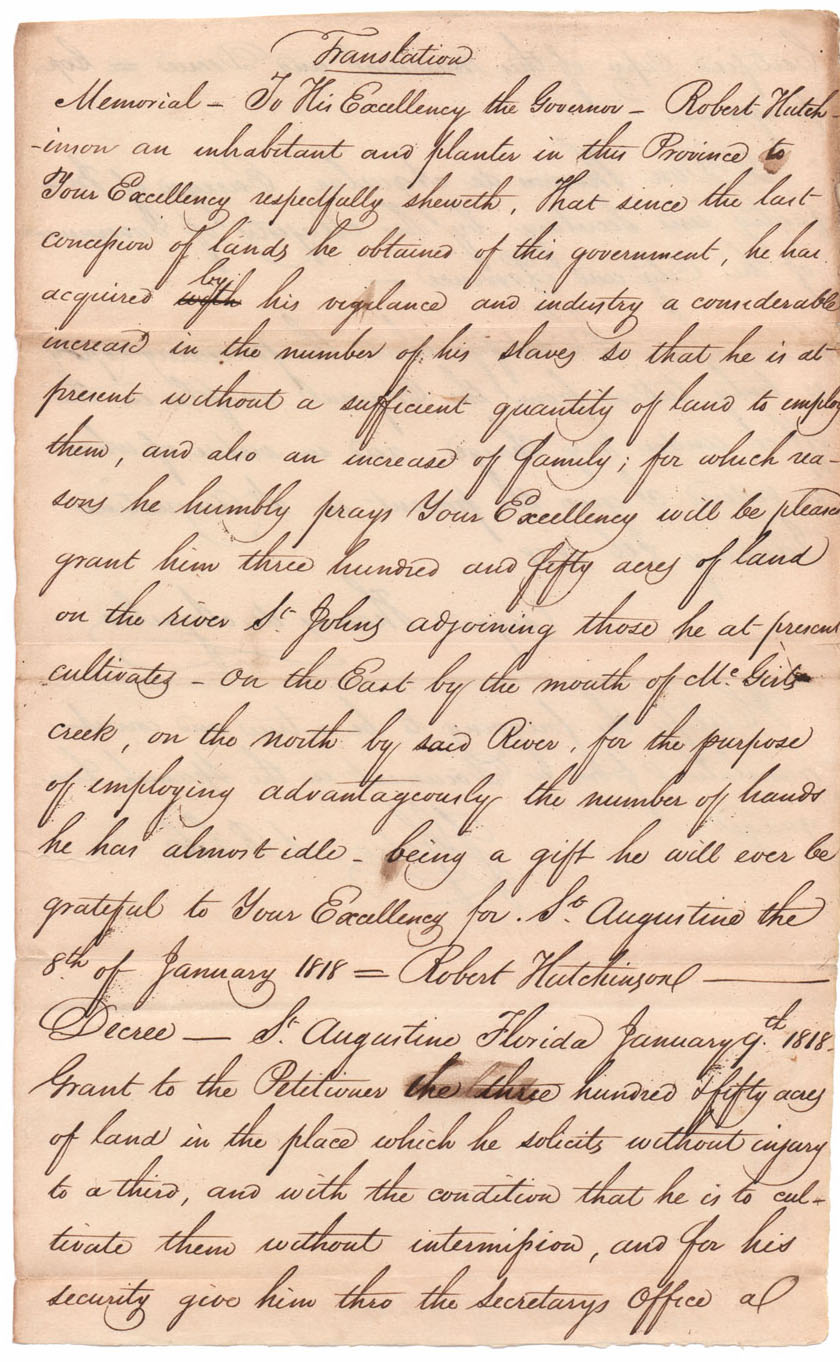 Translation
Memorial - To His Excellency the Governor - Robert Hutch-
-inson an inhabitant and planter in this Province to
Your Excellency respectfully sheweth, That since the last
concession of lands he obtained of this government, he has
acquired with by his vigilance and industry a considerable
increase in the number of his slaves so that he is at
present without a sufficient quantity of land to employ
them, and also an increase of family; for which rea-
sons he humbly prays Your Excellency will be pleased
grant him three hundred and fifty acres of land
on the river St. Johns adjoining those he at present
cultivates - On the East by the mouth of Mc Girts
creek, on the north by said River, for the purpose
of employing advantageously the number of hands
he has almost idle - being a gift he will ever be
grateful to Your Excellency for. St. Augustine the
8th of January 1818 = Robert Hutchinson —
Decree — St. Augustine Florida January 9th. 1818-
Grant to the Petitioner the three hundred & fifty acres
of land in the place which he solicits without injury
to a third, and with the condition that he is to cul-
tivate them without intermission, and for his
security give him thro the Secretarys Office a